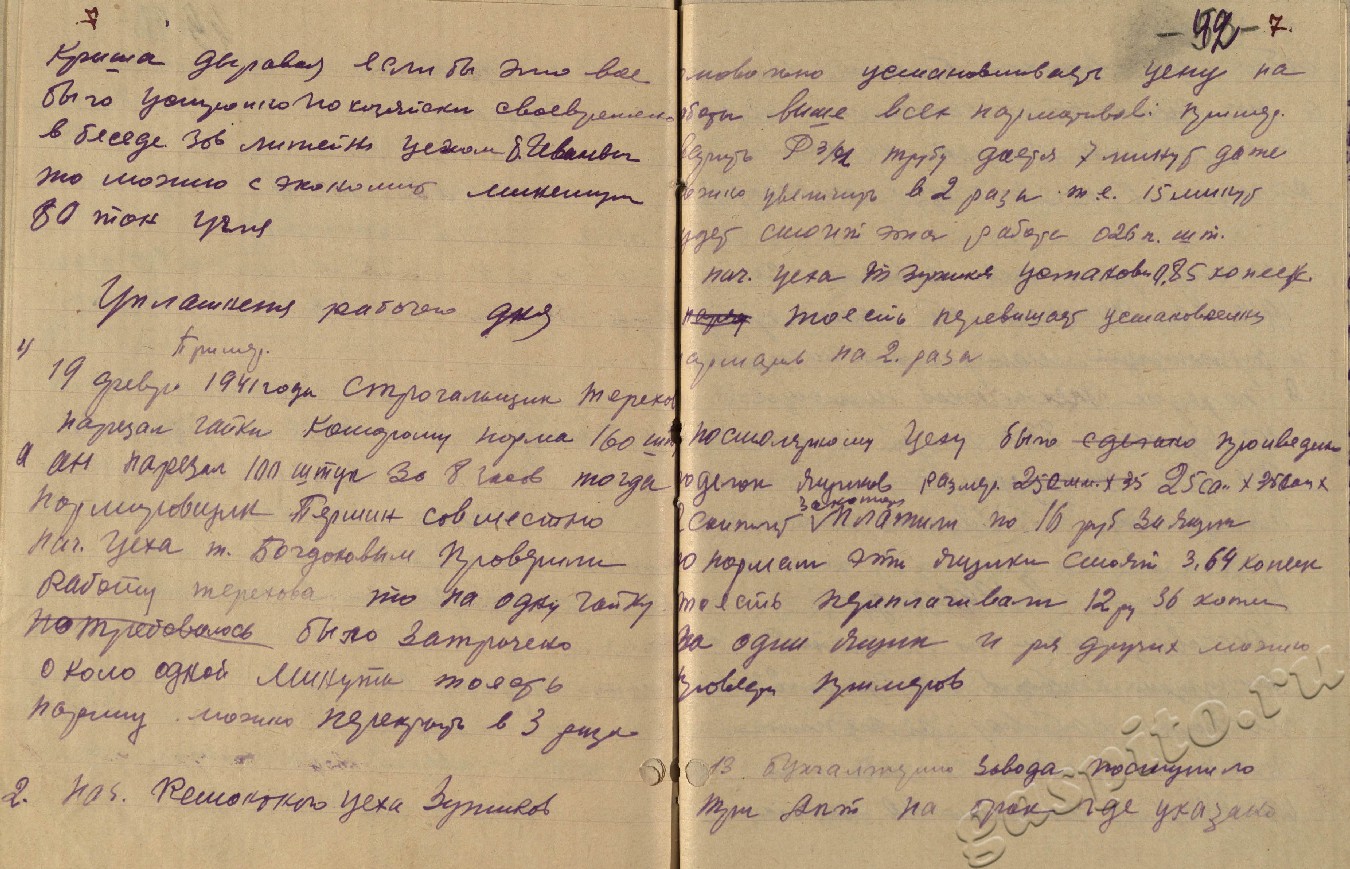 7
Крыша дыравая если бы это все
было устроино по хозяйски своевременно
в беседе зав литейн цехом
то можно с экономит минимум
80 тон угля
Уплашнеия рабочего дня
1) Пример.
19 февр 1941 года Строгальщик терехов
нарезал гайки которому норма 160 шт
а ан нарезал 100 штук за 8 часов тогда
нормировщик Першин совместно
нач. цеха т. Богдоковым проверили
работу терехова то на одну гайку
потребовалось было затрачено
около одной минуты тоесть
норму можно перекрыть в 3 раза
2. Нач. цеха Зуриков
-92- 7.
устанавливать цену на
выше всех нормативов: пример.
трубу дается 7 минут даже
увеличить в 2 раза т.е. 15 минут
стоит эта работа 026 к. шт.
нач. цеха установил 0,85 копеек.
тоесть перевищает установлению
на 2. раза
цеху было сделано произведено
ящиков размер. 250мм. х 35 25см х
платили по 16 руб за ящик
нормам эти ящики стоят 3,64 копеек
тоесть переплачивают 12 ру 36 копеек
за один ящик и ря других можно
провести примеров
13 бухгалтерию завода поступило
три Акт на брак где указано
gaspito.ru